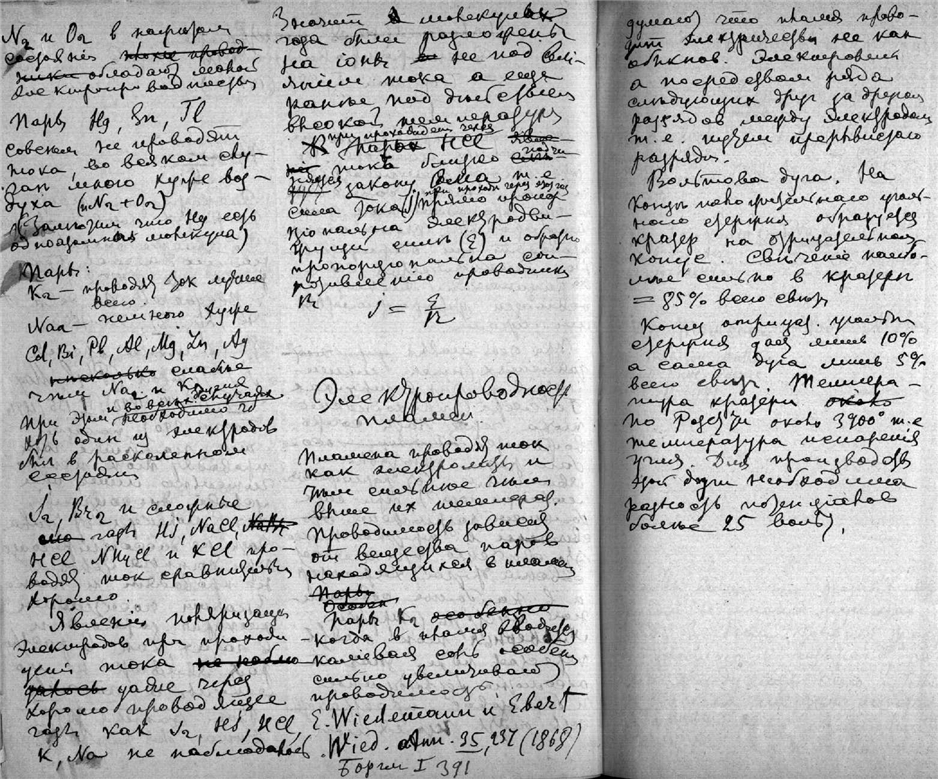 N2 и O2 в нагретом
состоянии
обладают
электропроводностью
Пары Hg, Sn, Tl
совсем не проводят
тока, во всяком слу-
чае много хуже воз-
духа (N2 + O2)
(Заметим что Hg есть
одноатомная молекула)
Пары:
K2 — проводят ток лучше
всего.
Na2 — немного хуже
Cd, Bi, Pb, Al, Mg, Zn, Ag
несколько слабее
чем Na2 и K2
и во всех случаях
При этом необходимо
один из электродов
был в раскаленном
состоянии
J2, Br2 и сложные
газы HJ, NaCl,
HCl NH4Cl и KCl про-
водят ток сравнительно
хорошо.
Явления поляризации
электродов при прохожде-
нии тока не наблю
далось даже через
хорошо проводящие
газы как J2, HJ, HCl,
K, Na не наблюдалось
Значит молекулы
газа были разложены
на ионы не под вли-
янием тока а еще
раньше под действием
высокой температуры
при прохождении через
HCl
тока близко подчи-
законы Ома т.е.
сила тока при проходе через этот газ
прямо пропор-
циональна электродви-
жущей силе (ξ) и обратно
пропорциональна соп-
ротивлению проводника
R
j = ξ/R
Электропроводность
пламен.
Пламена проводят ток
как электролиты и
тем сильнее чем
выше их температ.
Проводимость зависит
от вещества паров
находящихся в пламени
Пары
Особен
Пары K2 особенно
когда в пламя вводится
калиевая соль особен
сильно увеличивают
проводимость
E. Wiedemann и Ebert
Wied. Ann. 35, 237 (1868)
Боргм I 391
думают что пламя прово-
дит электричество не как
обыкнов. электролит
а посредством ряда
следующих друг за другом
разрядов между электродами
т.е. путем прерывистого
разряда.
Вольтова дуга. На
конце положительного уголь-
ного стержня образуется
кратер на отрицательном
конус. Свечение наибо-
лее сильно в кратере
= 85% всего света
Конец отрицат. угольн
стержня дает лишь 10%
а сама дуга лишь 5%
всего света. Темпера-
тура кратера около
по Розетти около 3900° т.е.
температура испарения
угля. Для производства
этой дуги необходима
разность потенциалов
более 25 вольт.